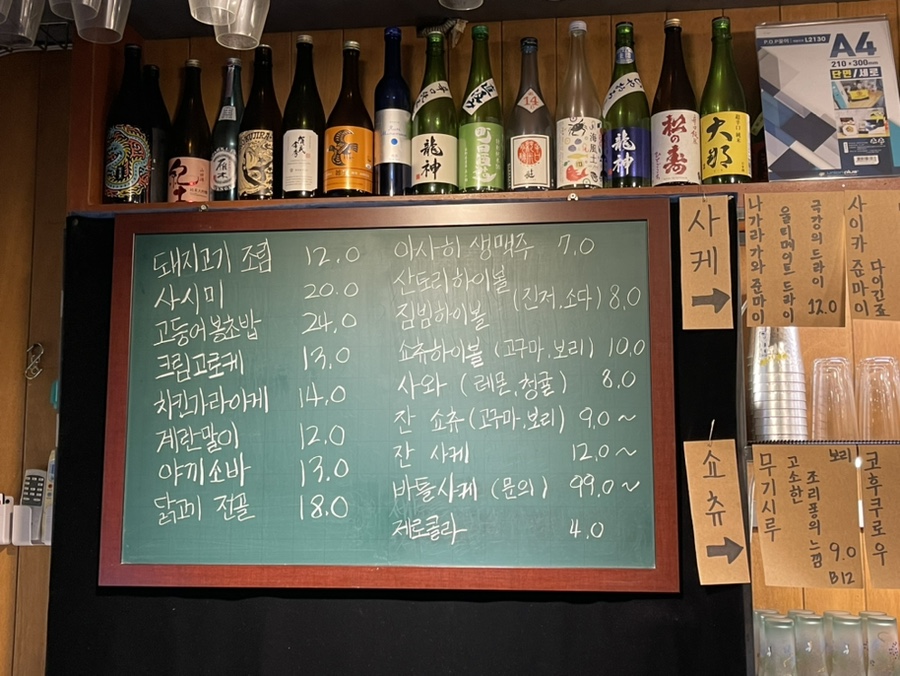 돼지고기 조림 12.0
사시미 20.0
고등어봉초밥 24.0
크림고로케 13.0
치킨가라아게 14.0
계란말이 12.0
야끼소바 13.0
닭고기 전골 18.0
아사히 생맥주 7.0
산토리하이볼
짐빔하이볼 (진저.소다) 8.0
쇼츄하이볼 (고구마.보리) 10.0
사와 (레몬.청귤) 8.0
잔 쇼츄 (고구마.보리) 9.0~
잔 사케 12.0~
바틀사케 (문의) 99.0~
제로콜라 4.0
사케 →
쇼츄 →
나가라가와 준마이
울티메이트 드라이
극강의 드라이
12.0
사이카 준마이
다이긴죠
무기시루
보리
고소한
조리퐁의 느낌
9.0
B12
코후쿠로우
龍神
龍神
松の寿
大那
14
P.O.P꽂이 L2130
A4
210×300mm
단면/세로